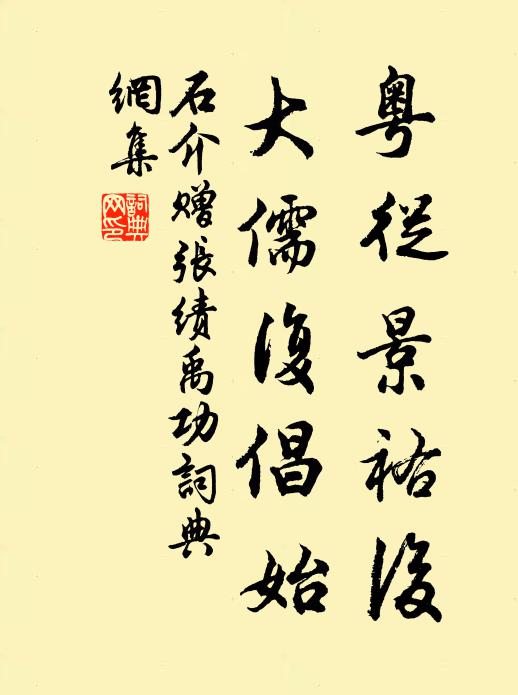 粵從景祐後
大儒復倡始
石介贈張績禹功詞典
網集
詞典
网印